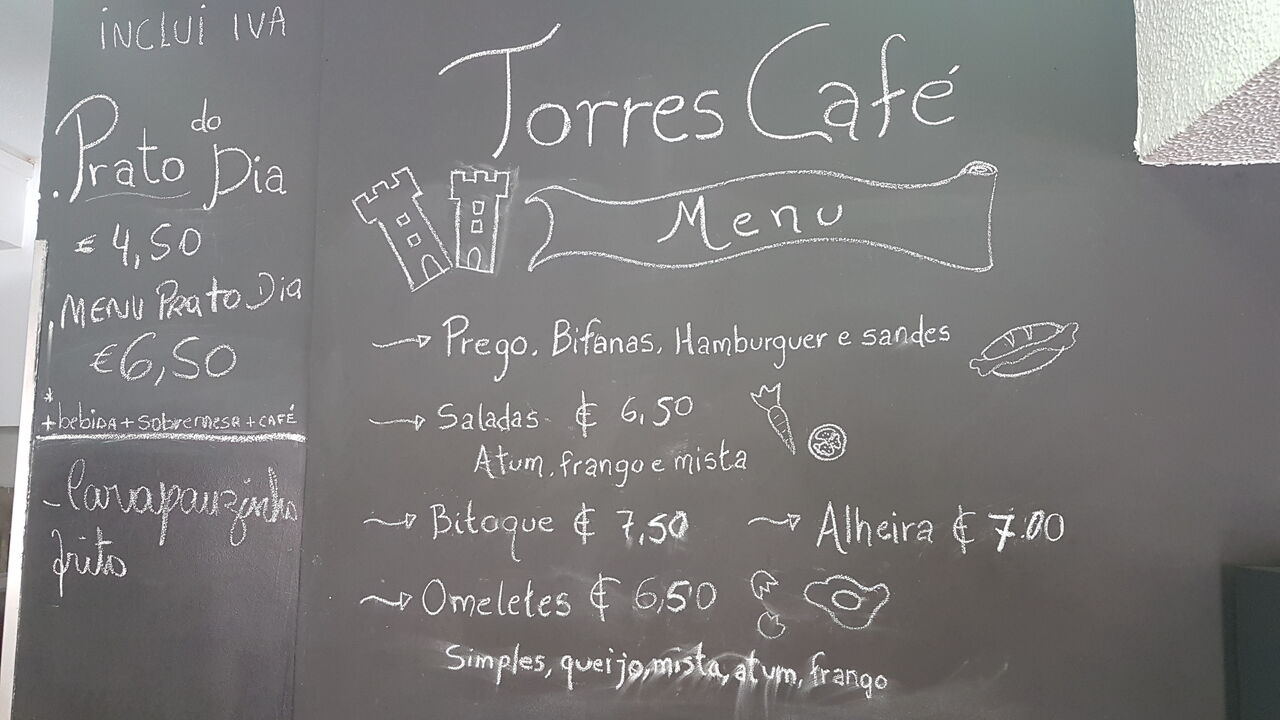 INCLUI IVA
Prato do Dia
€ 4,50
MENU PRato Dia
€6,50
*
+bebida+sobremesa+CAFÉ
- Carapauzinho
frito
Torres Café
Menu
→ Prego, Bifanas, Hamburguer e sandes
→ Saladas € 6,50
Atum, frango e mista
→ Bitoque € 7,50 → Alheira € 7.00
→ Omeletes € 6,50
Simples, queijo, mista, atum, frango